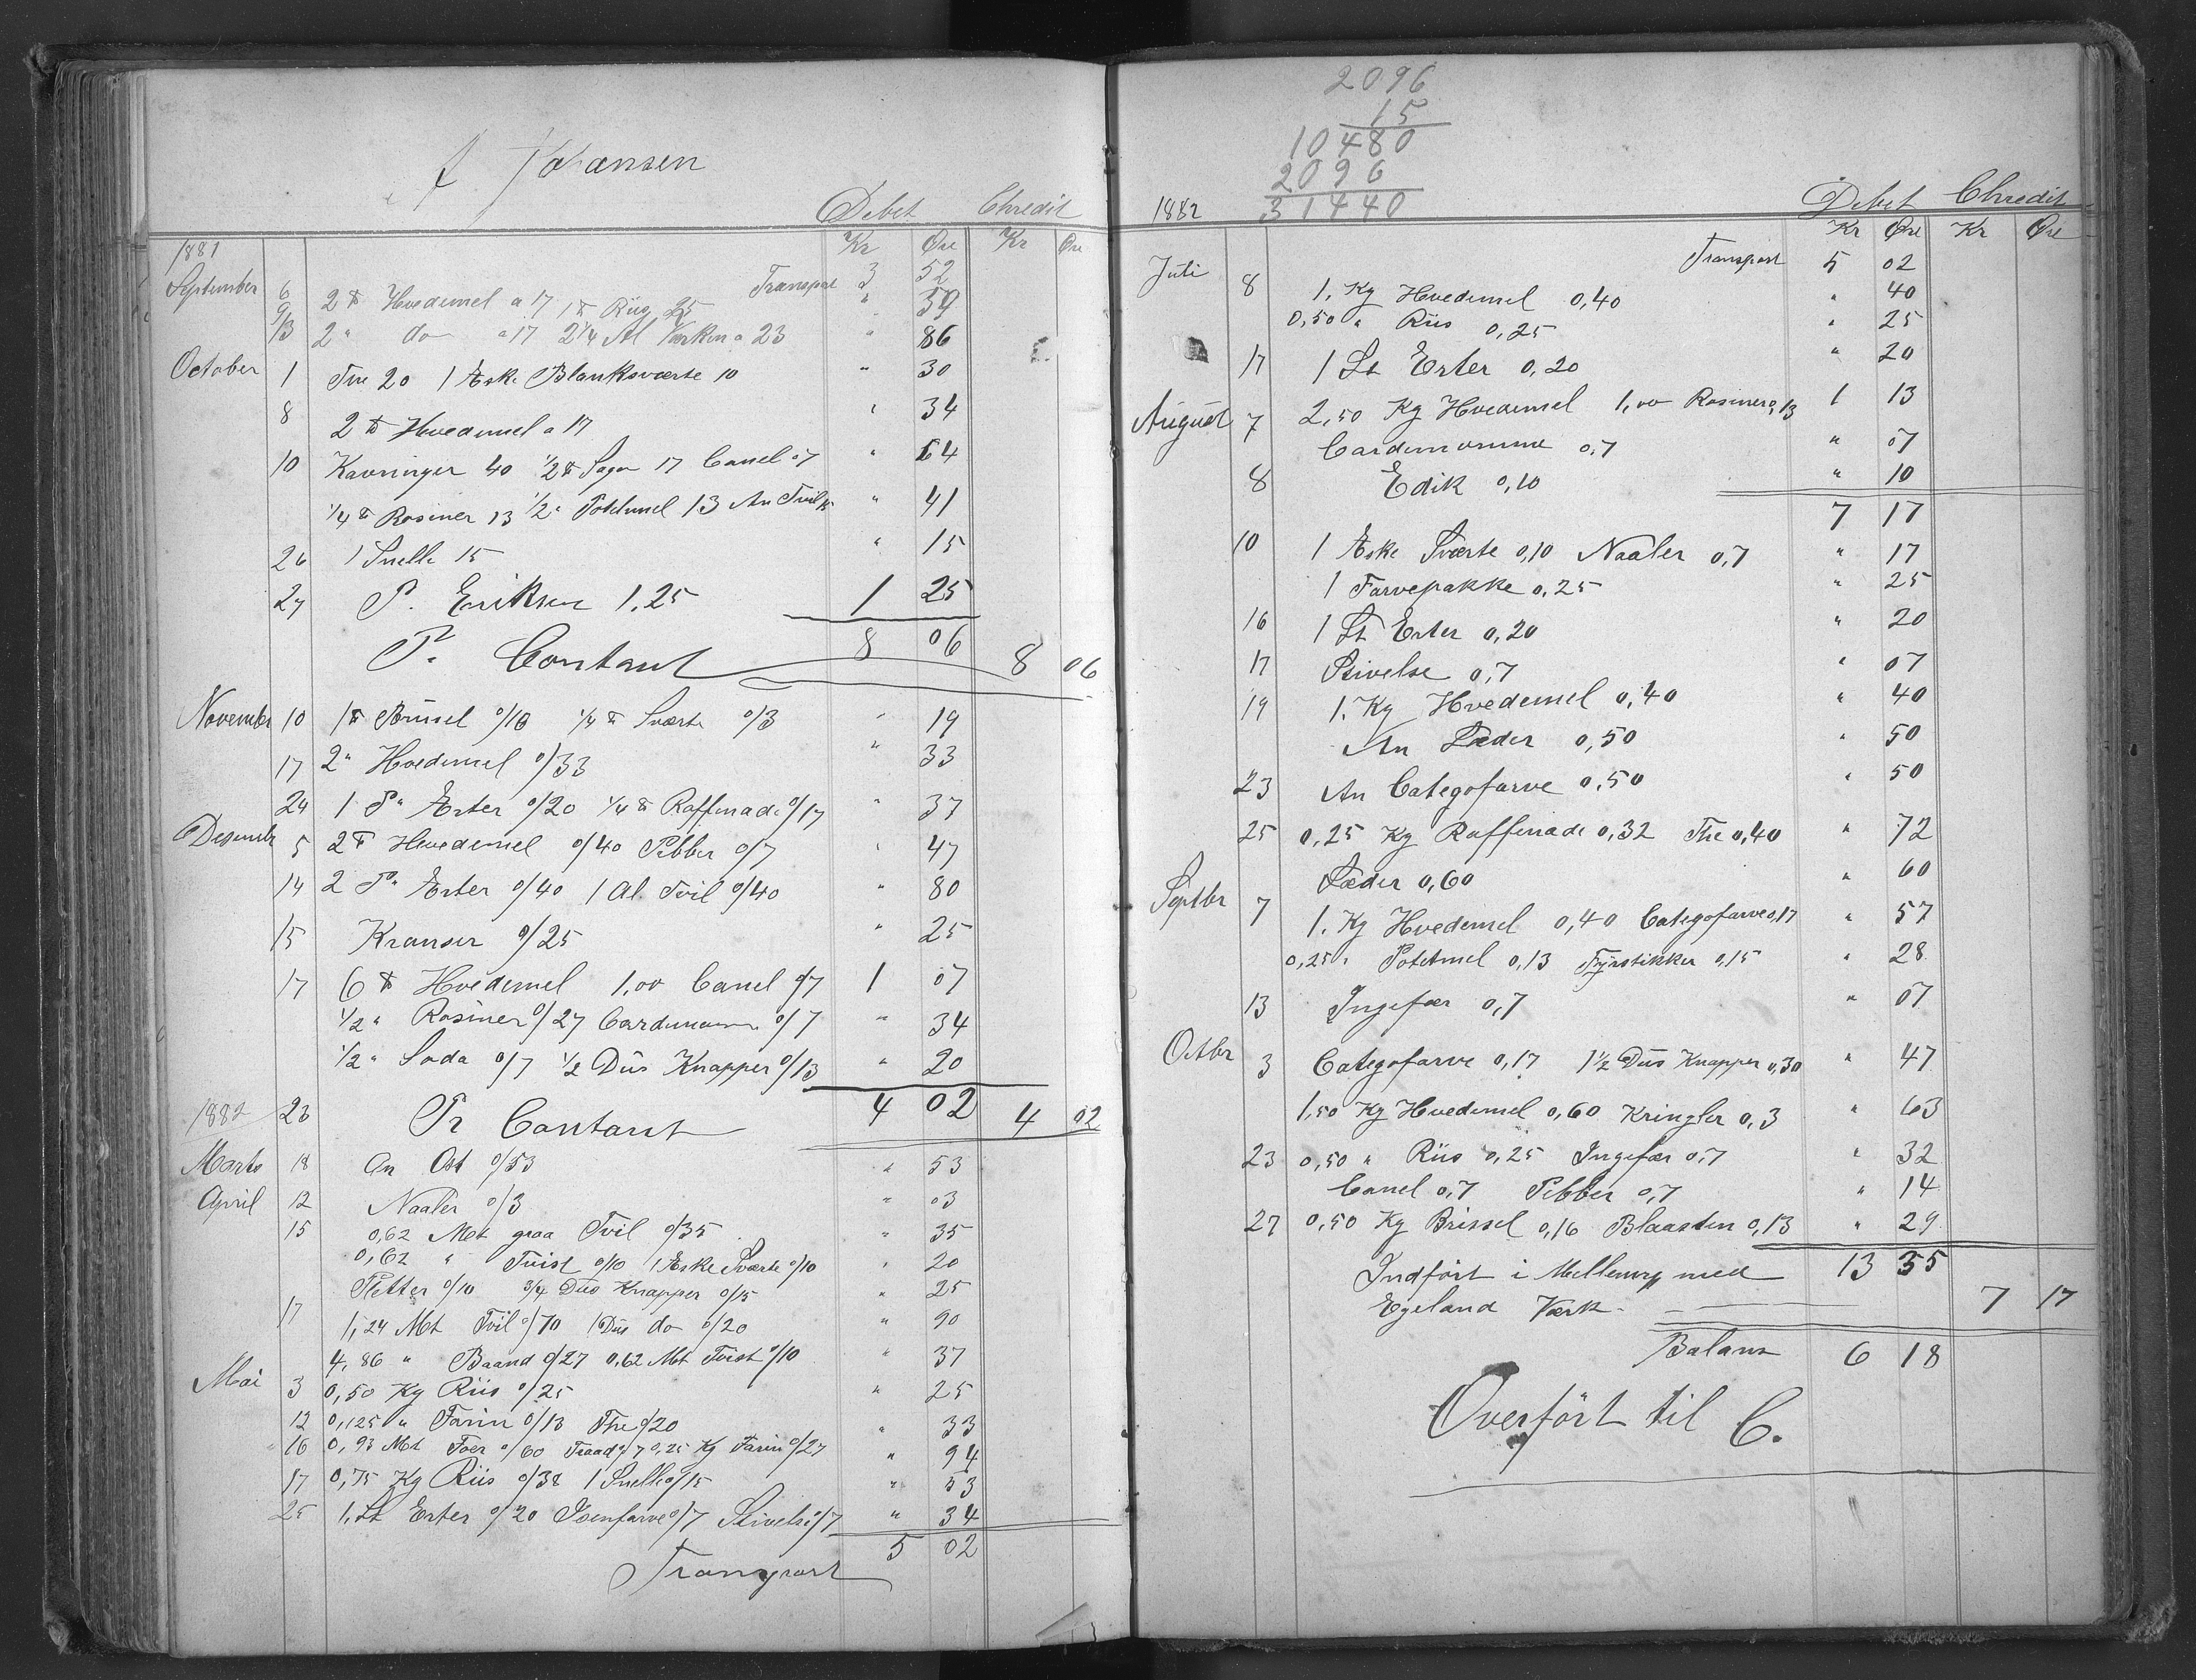 J Johansen
Debet Chredit
1881 Kr Øre Kr Øre
Transport 3 52
September 6 2 ℔ Hvedemel a 17 1 ℔ Riis 25 " 59
9/13 2 " do a 17 2 1/4 Al Værken a 23 " 86
October 1 Tue 20 1 Æske Blanksværte 10 " 30
8 2 ℔ Hvedemel a 17 " 34
10 Kavringer 40 1/2 ℔ Sago 17 Canel 07 " 64
1/4 ℔ Rosiner 13 1/2 " Potetmel 13 An Tvil 15 " 41
26 1 Snelle 15 " 15
27 P. Eriksen 1,25 1 25
8 06
Pr Contant 8 06
November 10 1 ℔ Brissel 0/16 1/4 ℔ Sværte 0/3 " 19
17 2 " Hvedemel 0/33 " 33
24 1 P " Erter 0/20 1/4 ℔ Raffinade 0/17 " 37
Desembr 5 2 ℔ Hvedemel 0/40 Pebber 0/7 " 47
14 2 P " Erter 0/40 1 Al Tvil 0/40 " 80
15 Kranser 0/25 " 25
17 6 ℔ Hvedemel 1,00 Canel 0/7 1 07
1/2 " Rosiner 0/27 Cardemome 0/7 " 34
1/2 " Soda 0/7 1/2 Dus Knapper 0/13 " 20
1882 23 Pr Contant 4 02 4 02
Marts 18 An Ost 0/53 " 53
April 12 Naaler 0/3 " 03
15 0,62 Met graa Tvil 0/35 " 35
0,62 " Tvist 0/10 1 Æske Sværte 0/10 " 20
Pletter 0/10 3/4 Dus Knapper 0/15 " 25
17 1,24 Met Tvil 0/70 1 Dus do 0/20 " 90
4,86 " Baand 0/27 0,62 Met Tvist 0/10 " 37
Mai 3 0,50 Kg Riis 0/25 " 25
12 0,125 " Farin 0/13 The 0/20 " 33
16 0,93 Met Foer 0/60 Traad 0/7 0,25 Kg Farin 0/27 " 94
17 0,75 Kg Riis 0/38 1 Snelle 0/15 " 53
25 1. Lt Erter 0/20 Isenfarve 0/7 Stivelse 0/7 " 34
Transport 5 02
2096
15
10480
2096
31440
1882 Debet Chredit
Kr Øre Kr Øre
Transport 5 02
Juli 8 1. Kg Hvedemel 0,40 " 40
0,50 " Riis 0,25 " 25
17 1 Lt Erter 0,20 " 20
August 7 2,50 Kg Hvedemel 1,00 Rosiner 0,13 1 13
Cardemomme 0,7 " 07
8 Edik 0,10 " 10
7 17
10 1 Æske Sværte 0,10 Naaler 0,7 " 17
1 Farvepakke 0,25 " 25
16 1 Lt Erter 0,20 " 20
17 Stivelse 0,7 " 07
19 1. Kg Hvedemel 0,40 " 40
An Læder 0,50 " 50
23 An Categofarve 0,50 " 50
25 0,25 Kg Raffinade 0,32 The 0,40 " 72
Læder 0,60 " 60
Septbr 7 1. Kg Hvedemel 0,40 Categofarve 0,17 " 57
0,25 " Potetmel 0,13 Fyrstikker 0,15 " 28
13 Ingefær 0,7 " 07
Octbr 3 Categofarve 0,17 1 1/2 Dus Knapper 0,30 " 47
1,50 Kg Hvedemel 0,60 Kringler 0,3 " 63
23 0,50 " Riis 0,25 Ingefær 0,7 " 32
Canel 0,7 Pebber 0,7 " 14
27 0,50 Kg Brissel 0,16 Blaasten 0,13 " 29
Indført i Mellemrg med 13 35
Egeland Værk 7 17
Balans 6 18
Overført til C.